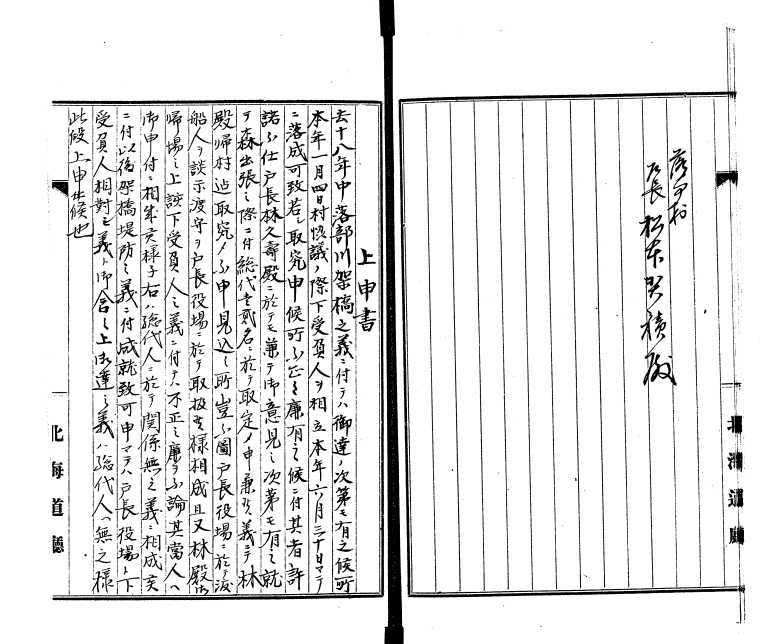 落部村
戸長 松本 積殿
北海道廳
上申書
去十八年中落部川架橋之義ニ付テハ御達ノ次第モ有之候所
本年一月四日村協議ノ際下受負人ヲ相立本年六月三十日マテ
ニ落成可致若シ取究申候所不正之廉有之候ニ付其者許
諾不仕戸長林久壽殿ニ於テモ兼テ御意見之次第モ有之就
テ森出張之際ニ付総代壱貳名ニ於テ取定メ申兼候義ニテ林
殿帰村迠取究メ不申見込之所豈不圖戸長役場ニ於テ渡
船人ヲ談示渡守ヲ戸長役場ニ於テ取扱候様相成且又林殿
帰場之上談下受負人之義ニ付テハ不正之廉ヲ不論其當人ヘ
御申付ニ相成候様子右ハ総代人ニ於テ関係無之義ニ相成候
ニ付以後架橋堤防之義ニ付成就致可申マテハ戸長役場ト下
受負人相對之義ト御含之上御達之義ハ総代人ヘ無之様
此段上申仕候也
北海道廳